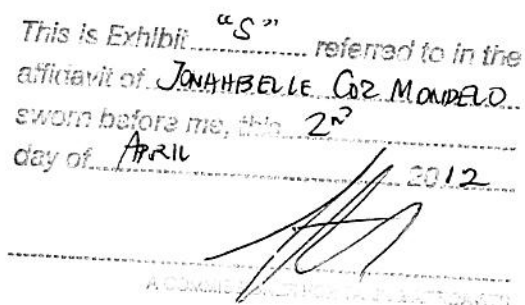 This is Exhibit "S" referred to in the
affidavit of JONAHBELLE COZ MONDELO
sworn before me, this 2nd
day of APRIL 2012
A COMMISSIONER FOR